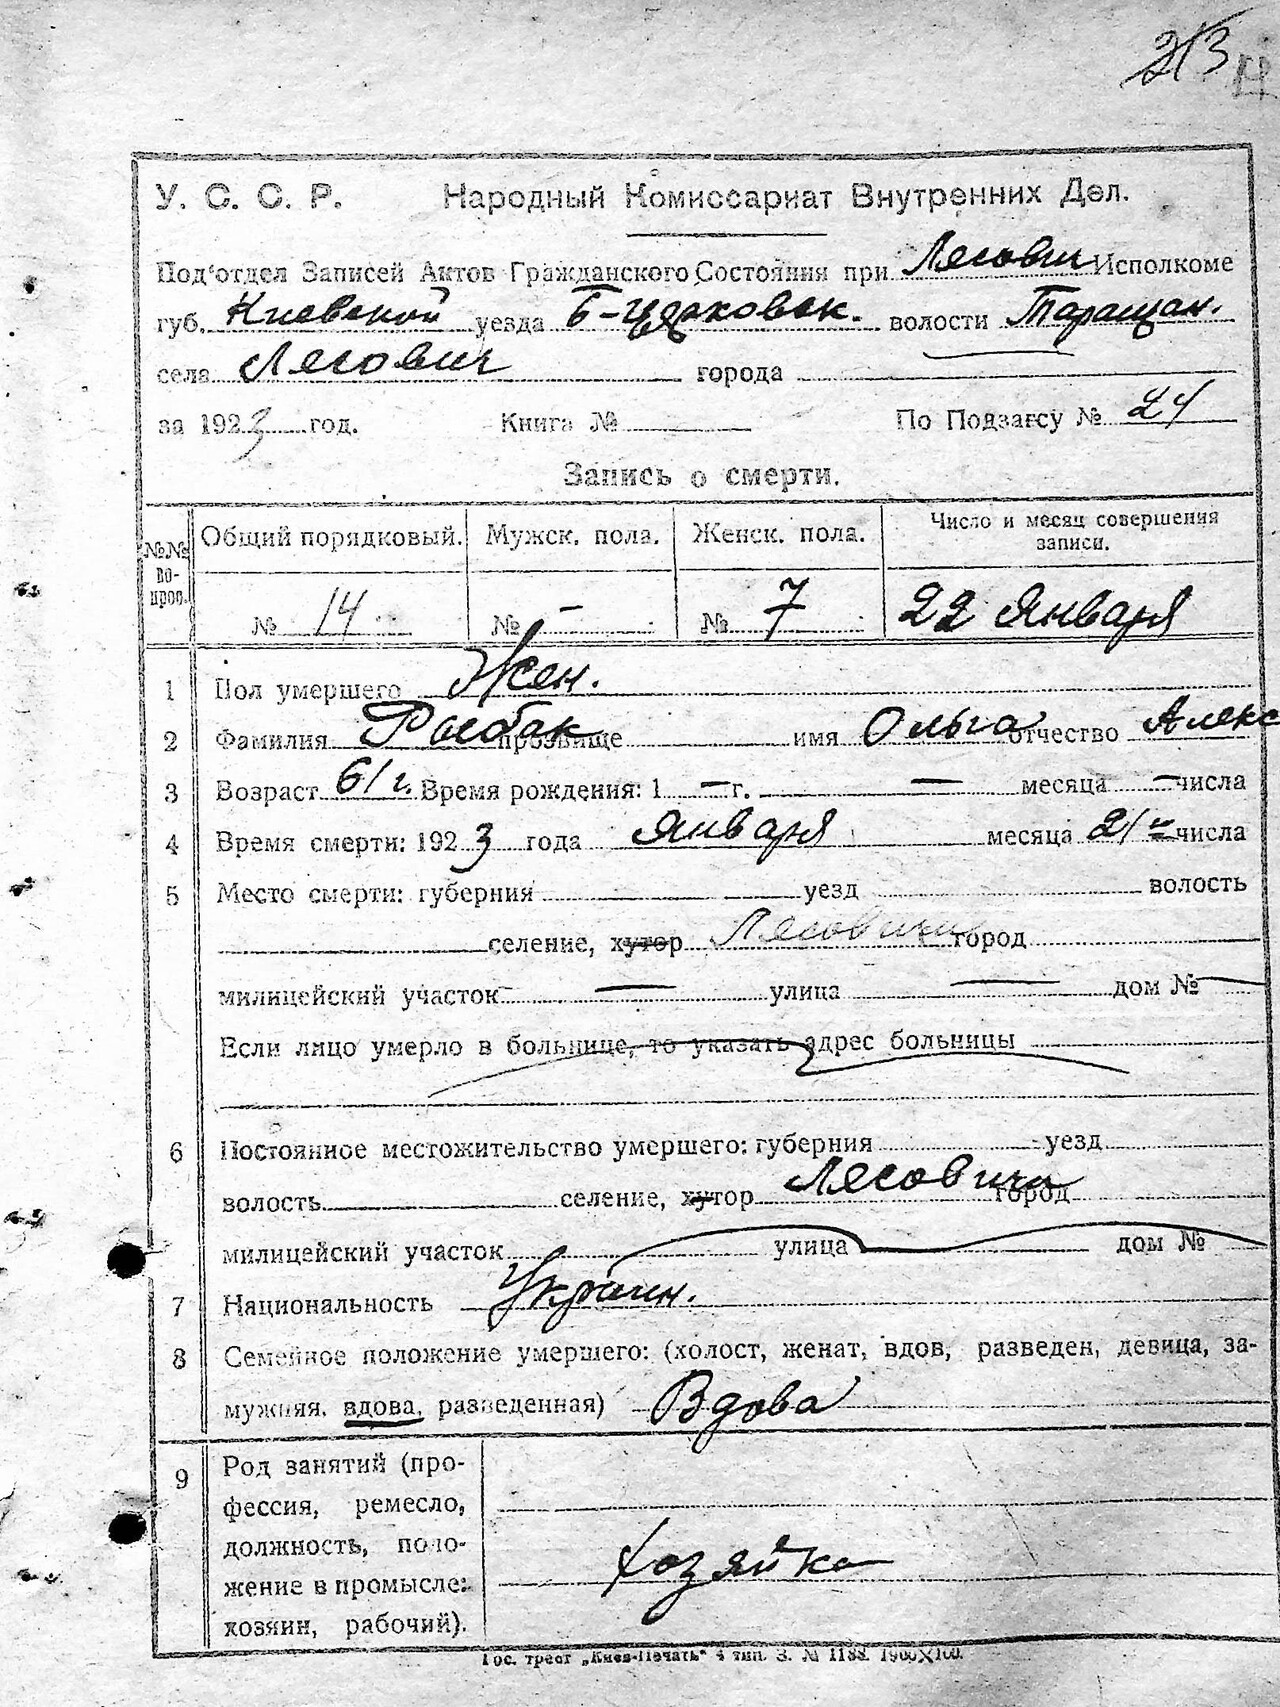 213
У. С. С. Р. Народный Комиссариат Внутренних Дел.
Под'отдел Записей Актов Гражданского Состояния при Лясович Исполкоме
губ. Киевской уезда Б-Церковск. волости Таращан.
села Лясович города
за 1923 год. Книга № По Подзагсу № 24
Запись о смерти.
№№ вопрос. Общий порядковый. Мужск. пола. Женск. пола. Число и месяц совершения записи.
№ 14 № – № 7 22 Января
1 Пол умершего Жен.
2 Фамилия Рыбак прозвище имя Ольга отчество Алекс
3 Возраст 61 г. Время рождения: 1 — г. — месяца — числа
4 Время смерти: 1923 года Января месяца 21 числа
5 Место смерти: губерния уезд волость
селение, хутор Лясовичи город
милицейский участок — улица — дом № —
Если лицо умерло в больнице, то указать адрес больницы
6 Постоянное местожительство умершего: губерния уезд
волость селение, хутор Лясовичи город
милицейский участок улица дом №
7 Национальность Украин.
8 Семейное положение умершего: (холост, женат, вдов, разведен, девица, за-
мужняя, вдова, разведенная) Вдова
9 Род занятий (про-
фессия, ремесло,
должность, поло-
жение в промысле:
хозяин, рабочий).
Хозяйка
Гос. трест „Киев-Печать" 4 тип. З. № 1188. 1900×100.